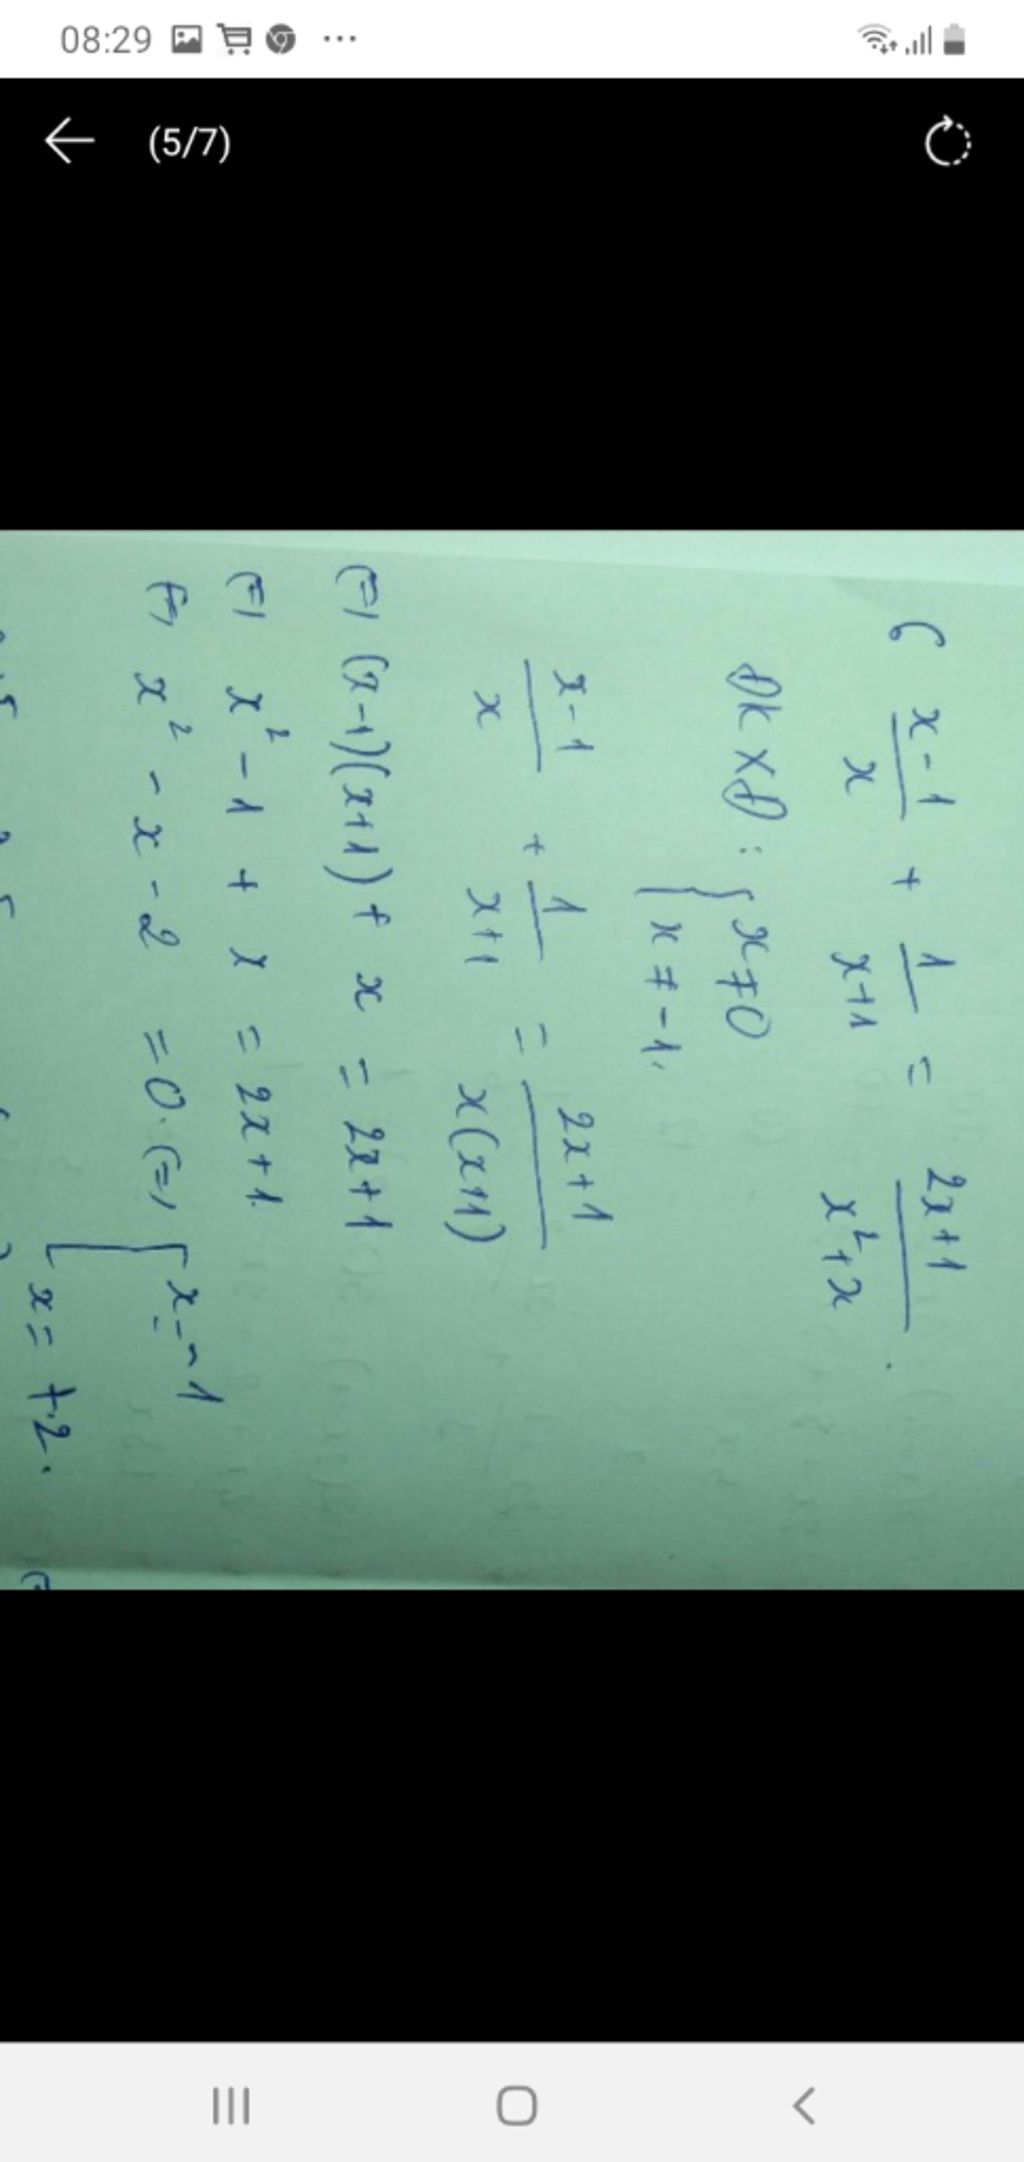 08:29
(5/7)
6 x-1/x + 1/x+1 = 2x+1/x²+x.
ĐKXĐ: { x≠0
x≠-1.
x-1/x + 1/x+1 = 2x+1/x(x+1)
(=) (x-1)(x+1) + x = 2x+1
(=) x²-1 + x = 2x+1.
(=) x² - x - 2 = 0. (=) [ x=-1
x = +2.